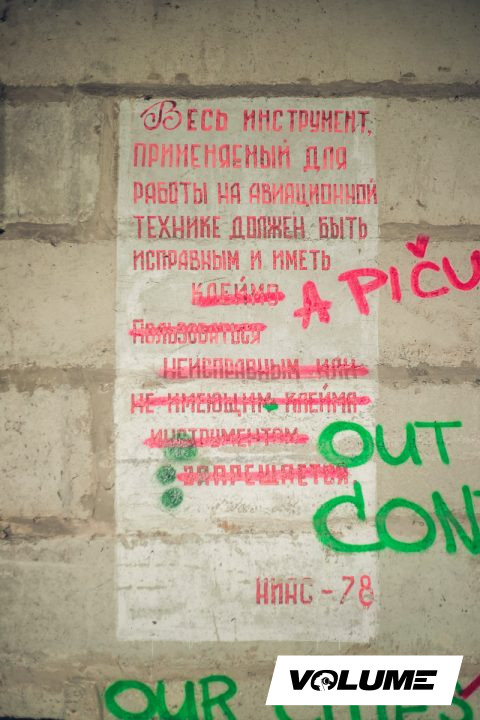 Весь инструмент,
применяемый для
работы на авиационной
технике должен быть
исправным и иметь
клеймо
А PIČU
Пользоваться
неисправным или
не имеющим клейма
инструментом
OUT
запрещается
CON
НИАС-78
VOLUME
OUR CITIES